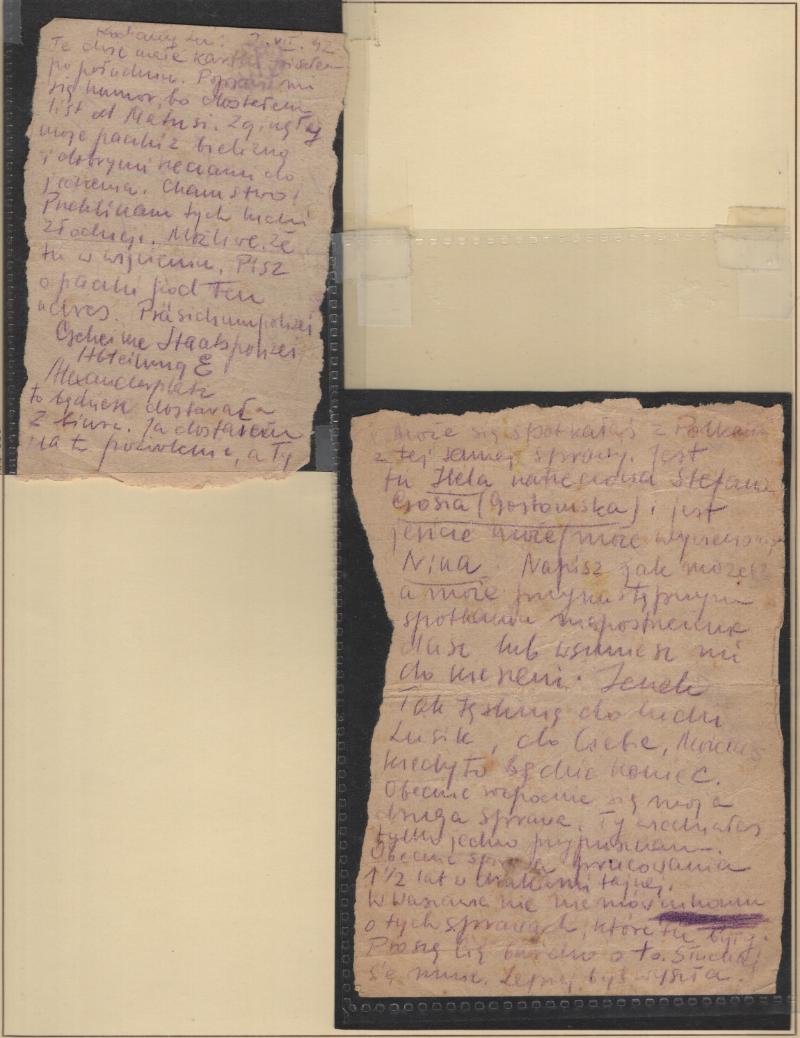 Kochany Lu! 2. VII. 42
Tę dość małą kartkę pisałem
po południu. Poprawił mi
się humor, bo dostałem
list od Matusi. Zginęły
moje paczki z bielizną
i dobrymi rzeczami do
jedzenia. Chamstwo!
Przeklinam tych ludzi
złodzieji. Możliwe, że
tu w więzieniu. Pisz
o paczki pod ten
adres. Präsidium polizei
Geheime Staatspolizei
Abteilung E
Alexanderplatz
to będziesz dostawała
z biura. Ja dostałem
na to pozwolenie, a Ty
może się spotkałaś z Polkami
z tej samej sprawy. Jest
tu Hela Stefania
Gosia (Gostomska) i jest
jeszcze może (może
Nina. Napisz jak możesz
a może przy następnym
spotkaniu niepostrzeżenie
dasz lub wsuniesz mi
do kieszeni. Jenek
Tak tęsknię do ludzi
Lusik, do Ciebie,
kiedy to będzie koniec.
Obecnie rozpocznie się moja
druga sprawa. Ty wiedziałaś
tylko jedno przypuszczam.
Obecnie sprawa pracowania
1 1/2 lat w drukarni tajnej.
W Warszawie nie mów nikomu
o tych sprawach, które tu były.
Proszę Cię bardzo o to. Słuchaj
się mnie. Lepiej byś wyszła.